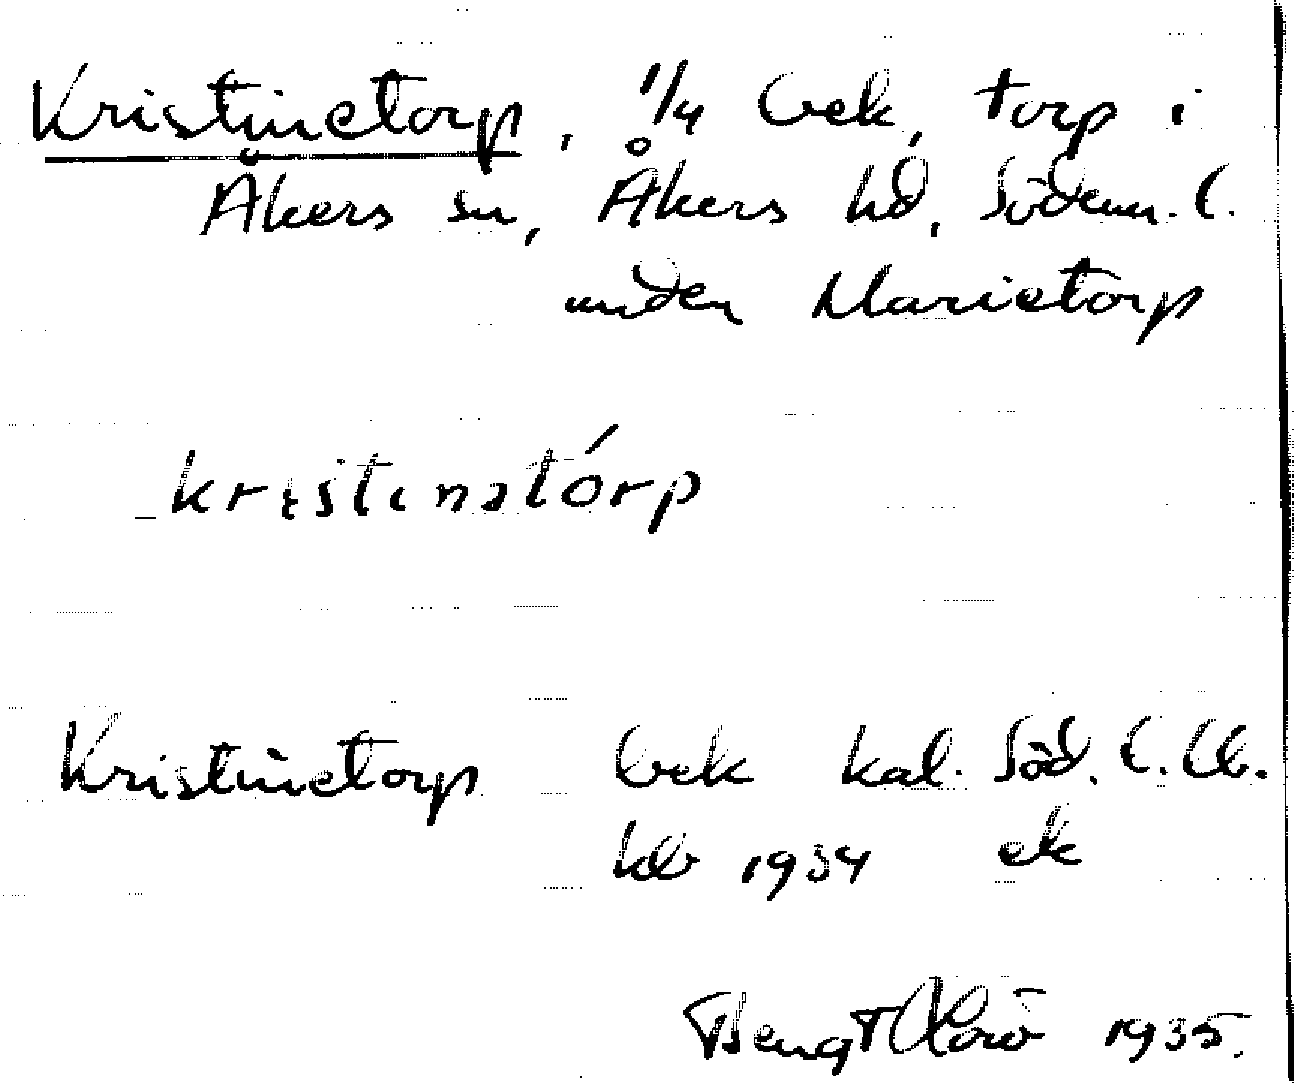 Kristinetorp, 1/4 bek, torp i
Åkers sn, Åkers hd, Söderm. l.
under Marietorp
kristinatórp
Kristinetorp bek kal. Söd. l.
hd 1934 ek
Bengt 1935.